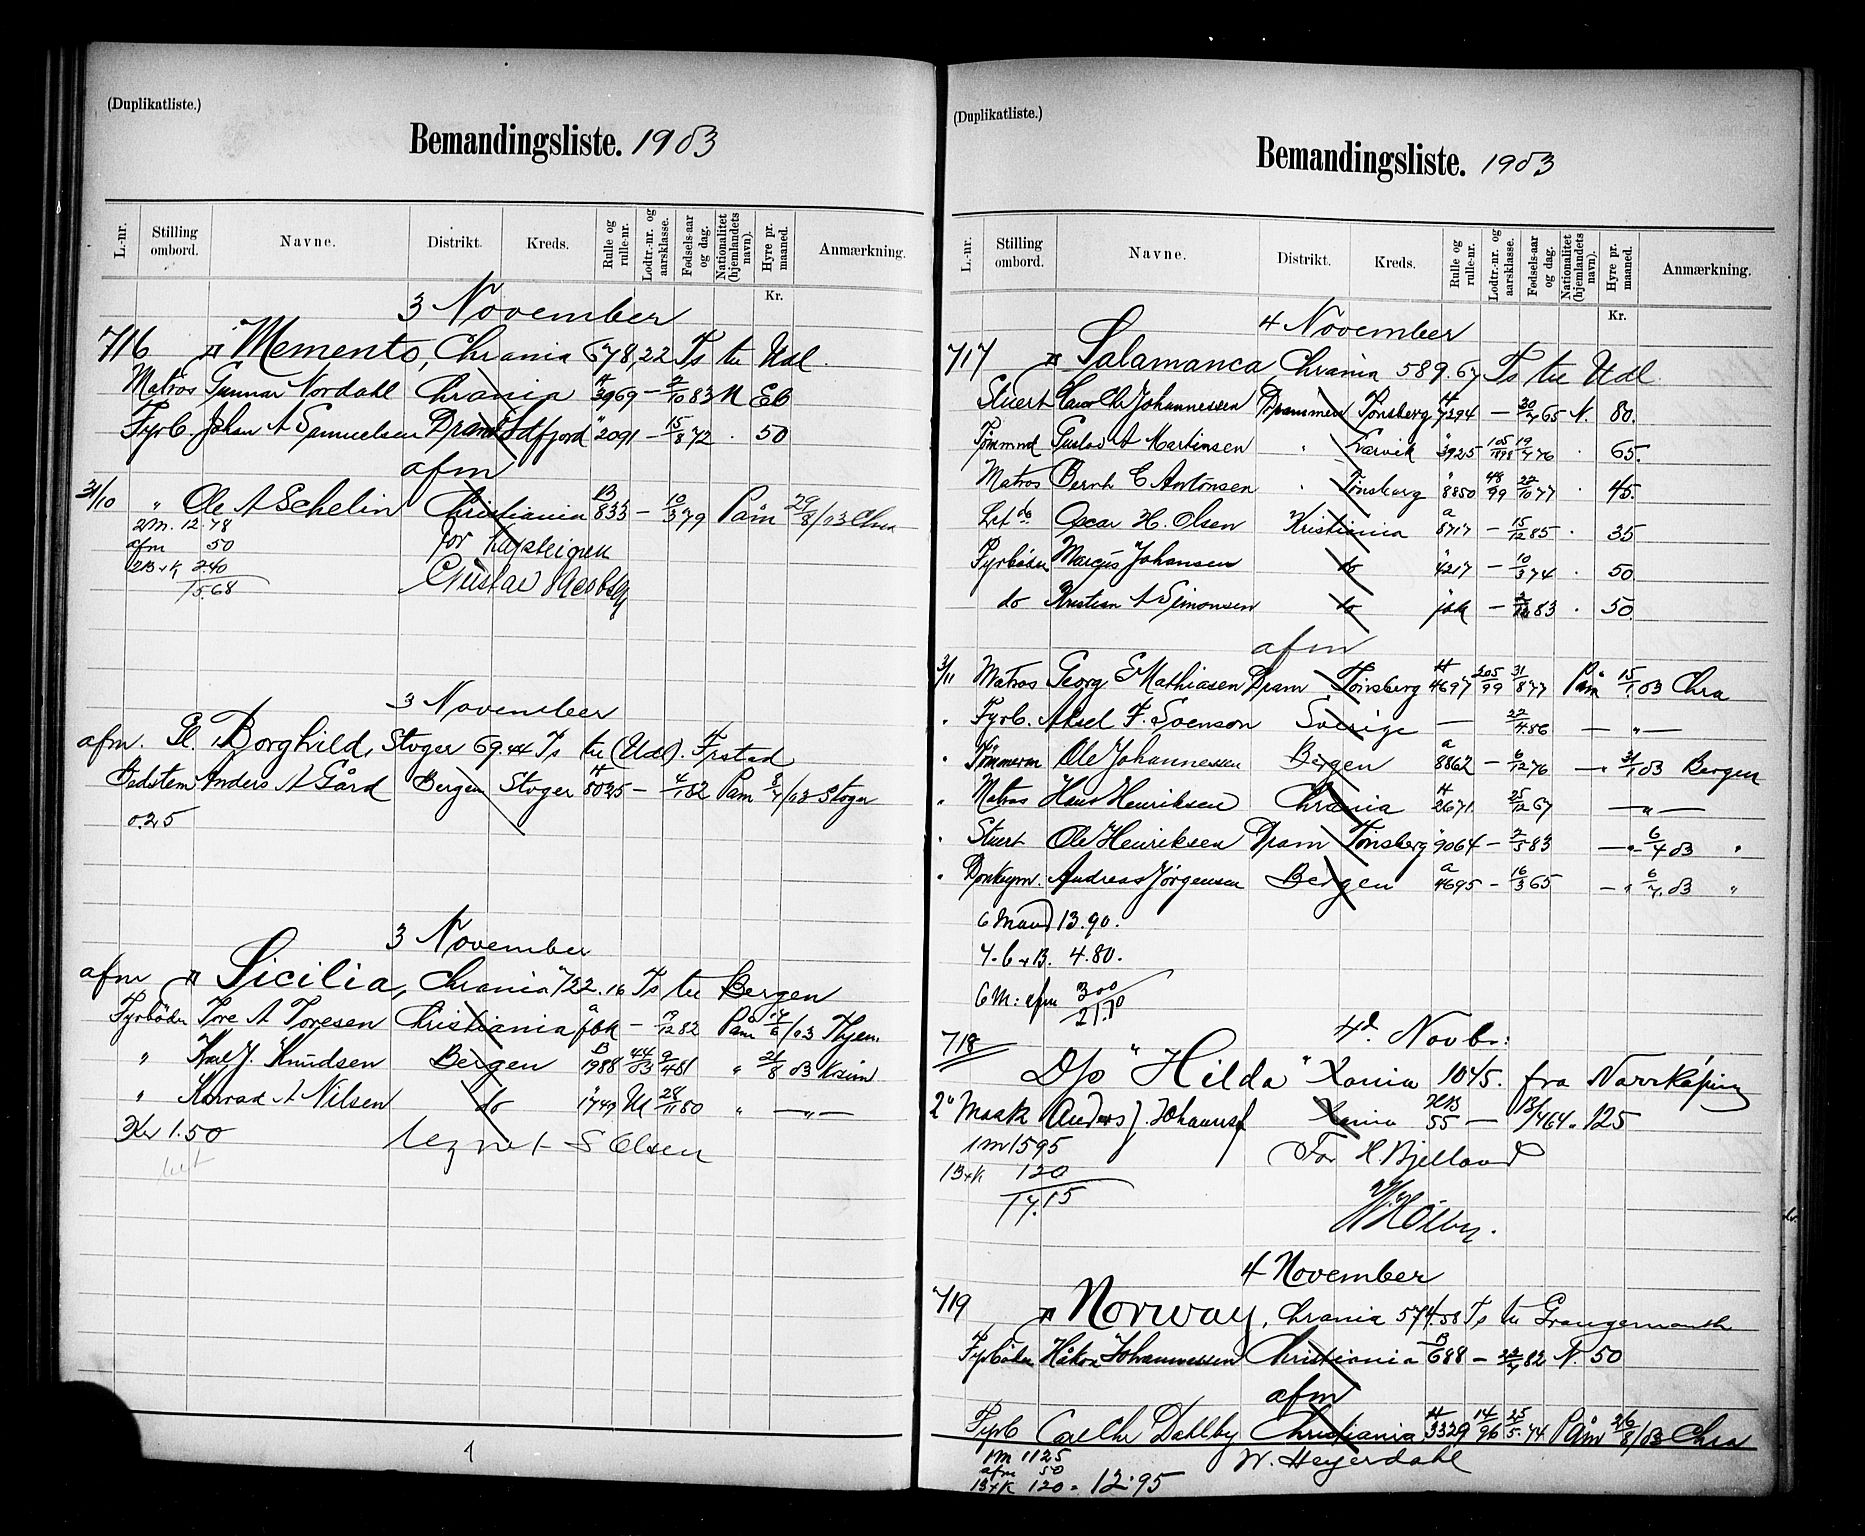 (Duplikatliste.)
Bemandingsliste. 1903
L.-nr. Stilling ombord. Navne. Distrikt. Kreds. Rulle og rulle-nr. Lodtr.-nr. og aarsklasse. Fødsels-aar og dag. Nationalitet (hjemlandets navn). Hyre pr. maaned. Anmærkning.
Kr.
3 November
716 " Memento, Chrania 678,22 Ts til Udl.
Matros Gunnar Nordahl Chrania 3969 – 2/10 83 N
Fyrb. Johan A Samuelsen Dram 2091 – 15/8 72 . 50
afm
31/10 " Ole A Schelin Christiania B 833 – 10/3 79 Påm 29/8/03 Chra
2 M. 12.78 for kapteinen
afm 50 Gustav
2B+K 2.40
15.68
3 November
afm. Sl. Borghild, Stager 69.44 Ts til (Udl). Frstad
Bedstem Anders A Gård Bergen 8025 – 4/1 82 Påm /03
0.25
3 November
afm " Sicilia, Chrania 722.16 Ts til Bergen
Fyrbøder Tore A Toresen Christiania a jbk – 82 Påm 17/6/03 Hjem.
" Karl J. Knudsen Bergen B 1988 44/03 9/4 81 " 21/8 03
" Konrad A Nilsen do 1749 M 28/11 80 " – " –
3 Kr 1.50 S Olsen
(Duplikatliste.)
Bemandingsliste. 1903
L.-nr. Stilling ombord. Navne. Distrikt. Kreds. Rulle og rulle-nr. Lodtr.-nr. og aarsklasse. Fødsels-aar og dag. Nationalitet (hjemlandets navn). Hyre pr. maaned. Anmærkning.
Kr.
4 November
717 " Salamanca Chrania 589.67 Ts til Udl.
Stuert Chr Johannessen Drammen Tønsberg 7294 – 30/7 65 N. 80.
Tømmrmd Gustav A Martinsen " Larvik 3925 105/1898 19/7 76 . 65.
Matros Bernh C Antonsen . Tønsberg 8850 48/99 22/10 77 . 45.
Let do Oscar H. Olsen Kristiania a 8717 – 15/12 85 . 35
Fyrbøder Marcus Johansen do 4217 – 10/3 74 . 50
do Kristian A Simonsen do jbk – 83 . 50.
afm
3/11 Matros Georg E Mathiasen Dram Tønsberg 4697 205/99 31/8 77 Påm 15/1 03 Chra
. Fyrb. Aksel F. Svenson Sverige – 22/4 86 – " –
. Tømmerm Ole Johannessen Bergen a 8862 – 6/12 76 – " 31/1 03 Bergen
" Matros Hans Henriksen Chrania 2671. 25/12 67 – " –
. Stuert Ole Henriksen Dram Tønsberg 9064 – 2/5 83 – " – 6/4 03 "
. Donkeym. Andreas Jörgensen Bergen a 4695 – 16/3 65 – " 6/7 03 "
6 Mand 13.90.
4.80.
6 M: afm 300
21.70
718 4d. Novbr:
D/s "Hilda" Xania 1045. fra Norrköping
2n Mask Anders J. Johanns Xania 55 – 64 . 125
1 m 1595 For H. Bjelland
1B+K 120
17.15
4 November
719 " Norway, Chrania 574.58 Ts til Grangemouth
Fyrbøder Håkon Johannessen Christiania B 688 – 22/7 82 N. 50
afm
Fyrb Carl Chr Dahlby Christiania 3329 14/96 25/5 74 Påm 26/8/03 Chra
1 M 1125 W. Heyerdahl
afm 50
1B+K 120 = 12.95